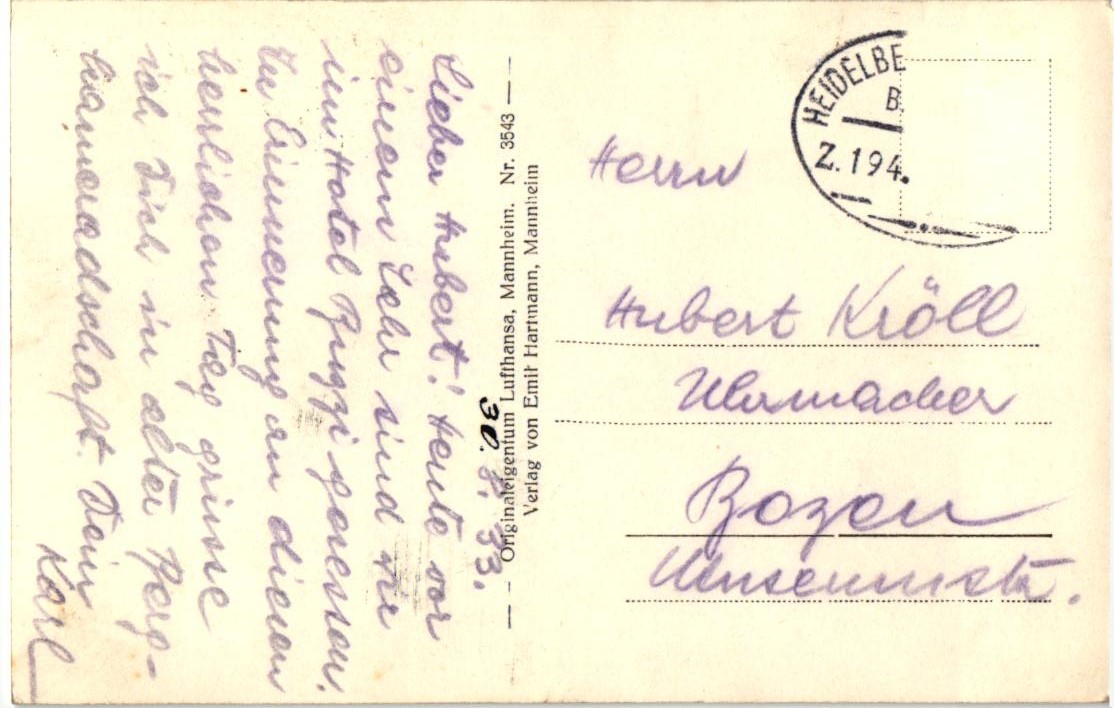 30. 8. 33.
Lieber Hubert! Heute vor
einem Jahr sind wir
im Hotel gesessen.
In Erinnerung an diesen
herrlichen Tag grüsse
ich Dich in alter Berg-
kameradschaft. Dein
Karl
Originaleigentum Lufthansa, Mannheim. Nr. 3543
Verlag von Emil Hartmann, Mannheim
HEIDELBE
B.
Z. 194.
Herrn
Hubert Kröll
Uhrmacher
Bozen
Museumstr.